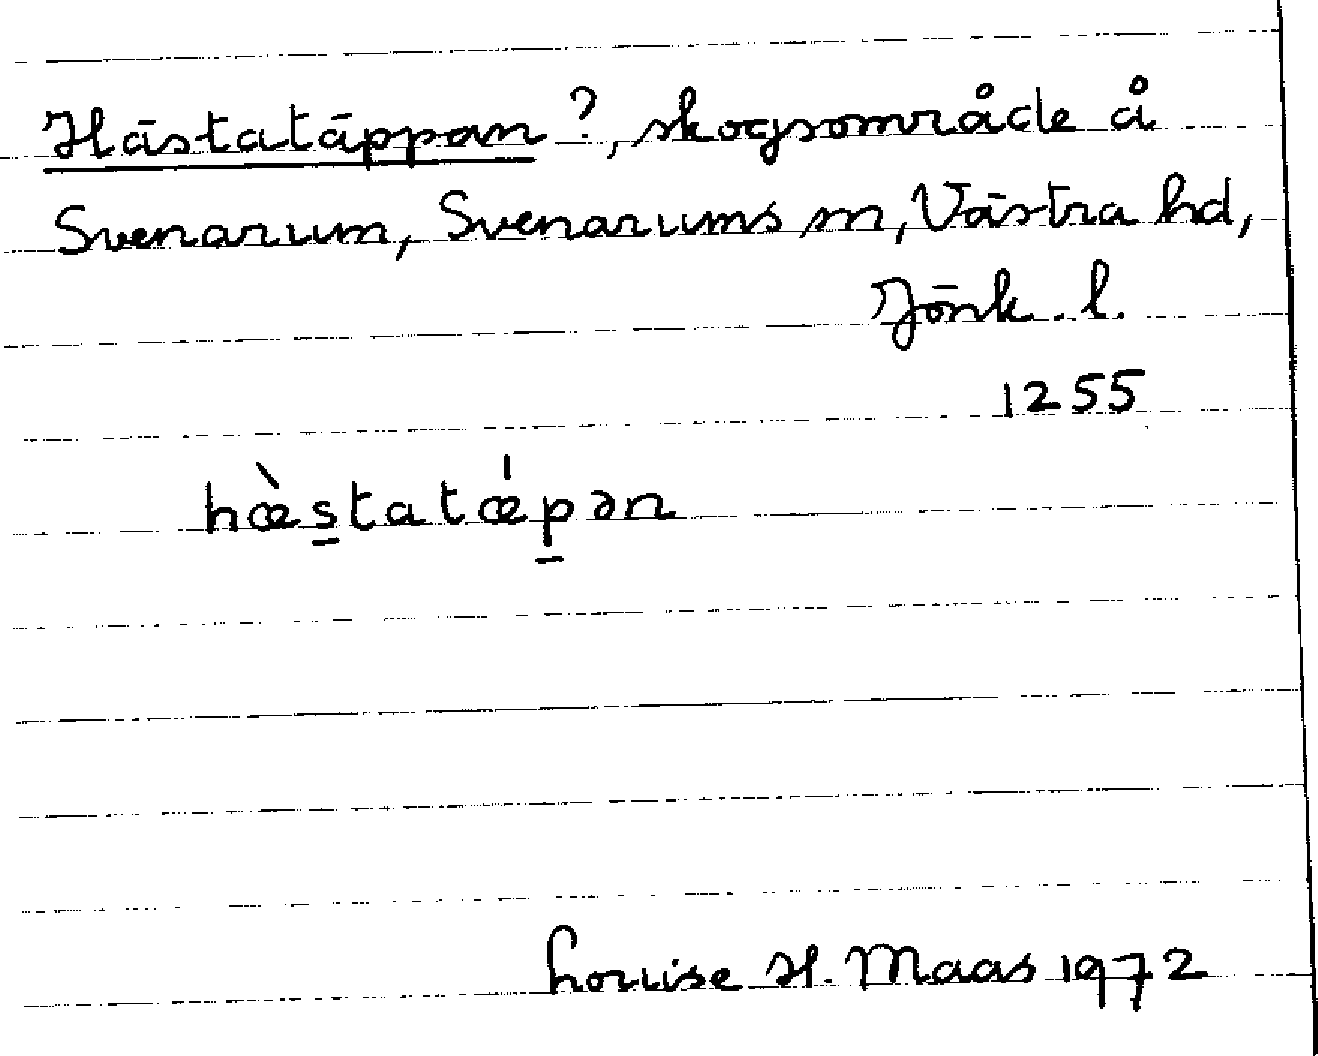 Hästatäppan ?, skogsområde å
Svenarum, Svenarums sn, Västra hd,
Jönk. l.
1255
hæ̀s̲tatǽp̲ən
Louise H. Maas 1972